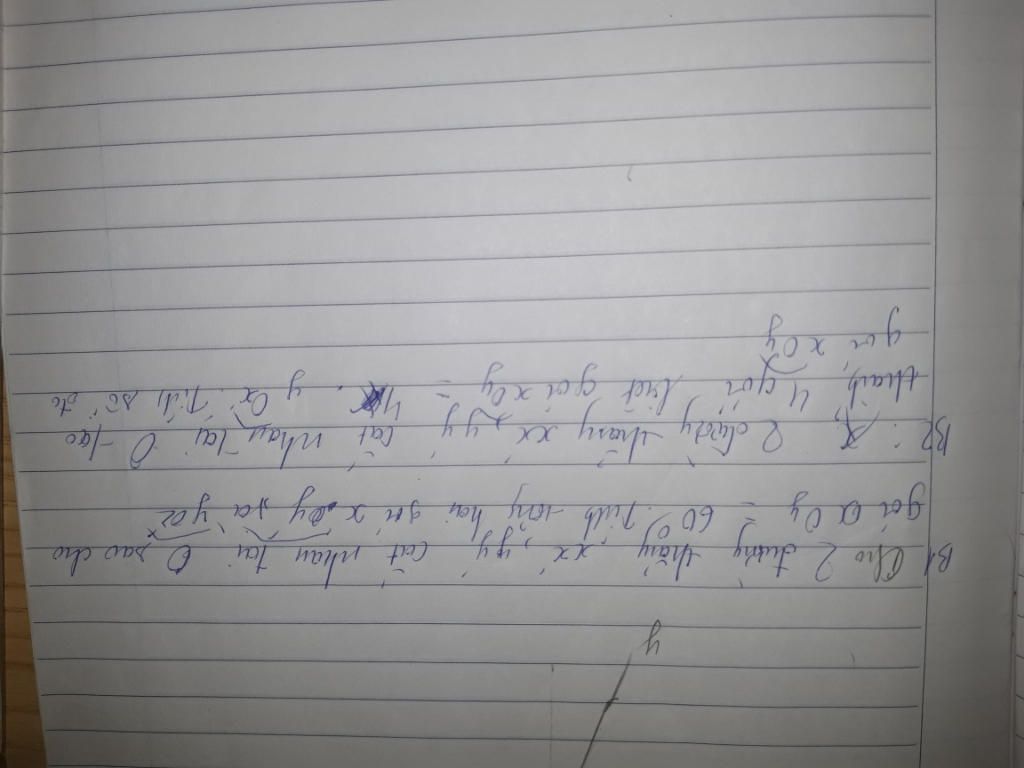 y
B1 Cho 2 đường thẳng xx', yy' cắt nhau tại O sao cho
góc xOy = 60°. Tính hai góc
B2: 2 đường thẳng xx', yy' cắt nhau tại O tạo
thành 4 góc, biết góc xOy = 4 y'Ox'. Tính số đo
góc xOy